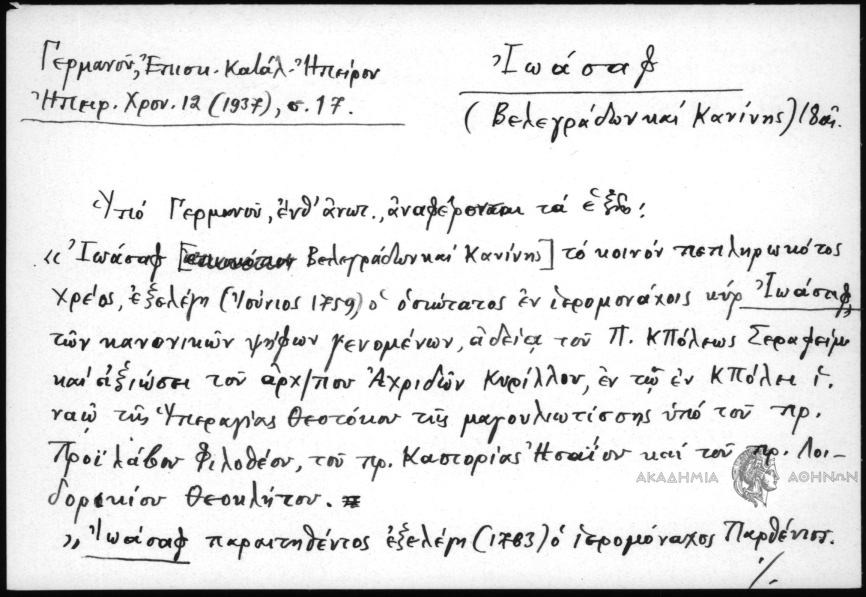 Γερμανοῦ, Ἐπισκ. Κατάλ. Ἠπείρου
Ἠπειρ. Χρον. 12 (1937), σ. 17.
Ἰωάσαφ
(Βελεγράδων καί Κανίνης) 18 αἰ.
Ὑπό Γερμανοῦ, ἐνθ' ἀνωτ., ἀναφέρονται τά ἑξῆς:
« Ἰωάσαφ [Βελεγράδων καί Κανίνης] τό κοινόν πεπληρωκότος
χρέος, ἐξελέγη (Ἰούνιος 1759) ὁ ὁσιώτατος ἐν ἱερομονάχοις κύρ Ἰωάσαφ,
τῶν κανονικῶν ψήφων γενομένων, ἀδείᾳ τοῦ Π. ΚΠόλεως Σεραφείμ
καί ἀξιώσει τοῦ ἀρχ/που Ἀχριδῶν Κυρίλλου, ἐν τῷ ἐν ΚΠόλει ἱ.
ναῷ τῆς Ὑπεραγίας Θεοτόκου τῆς μαγουλιωτίσσης ὑπό τοῦ πρ.
Προϊλάβου Φιλοθέου, τοῦ πρ. Καστορίας Ἠσαΐου καί τοῦ πρ. Λοι-
δορικίου Θεοκλήτου.
» Ἰωάσαφ παραιτηθέντος ἐξελέγη (1763) ὁ ἱερομόναχος Παρθένιος.
·/.
ΑΚΑΔΗΜΙΑ ΑΘΗΝΩΝ